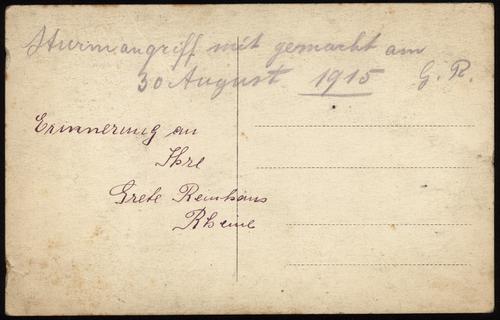 Sturmangriff mit gemacht am
30 August 1915 G. R.
Erinnerung an
Ihre
Grete Remhans
Rheine